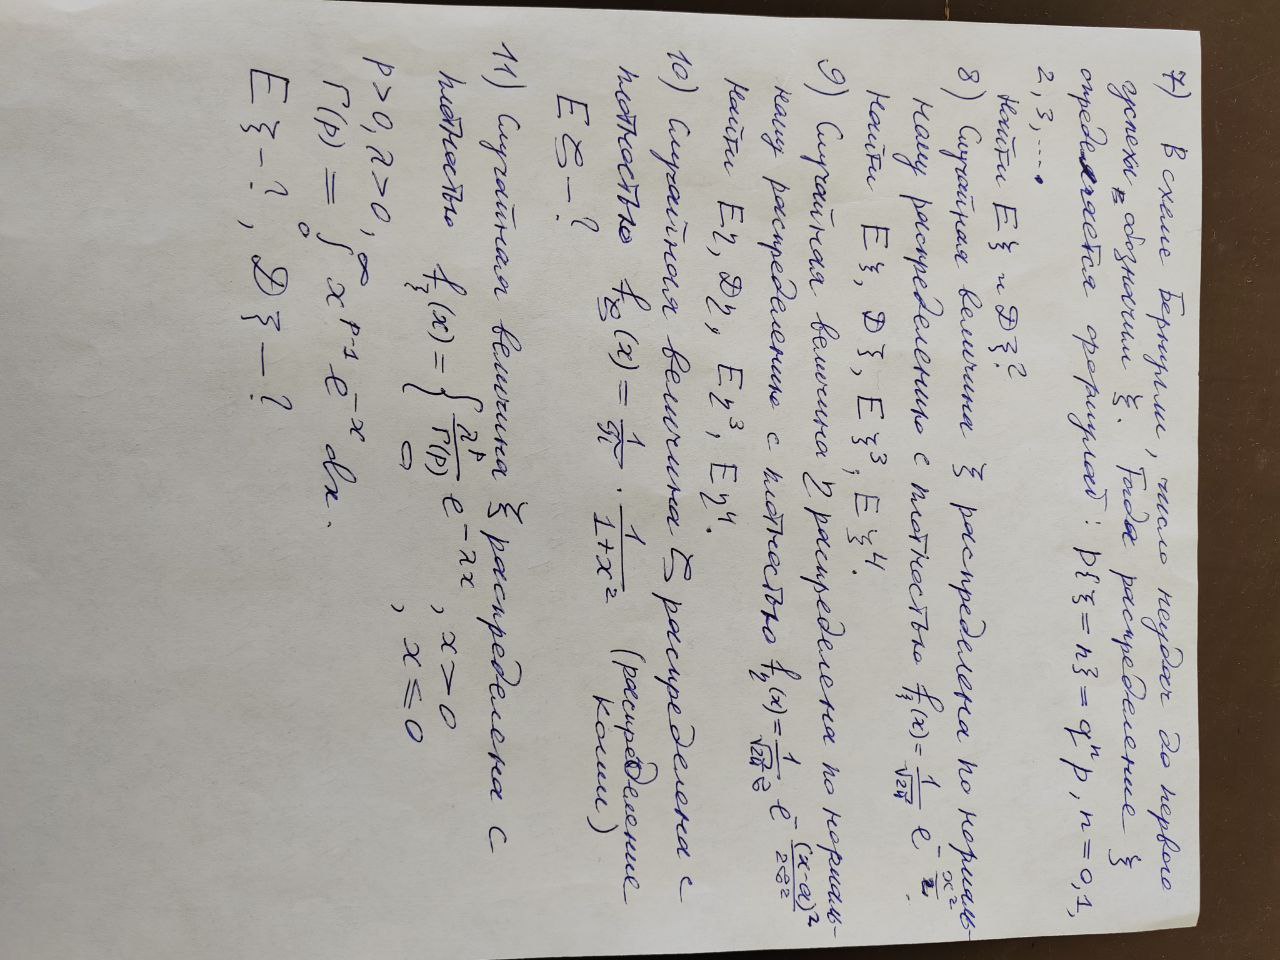 7) В схеме Бернулли, число неудач до первого
успеха обозначим ξ. Тогда распределение ξ
определяется формулой: P{ξ = n} = qⁿp, n = 0, 1,
2, 3, ....
Найти Eξ и Dξ?
8) Случайная величина ξ распределена по нормаль-
ному распределению с плотностью f_ξ(x) = 1/√2π e^(-x²/2).
Найти Eξ, Dξ, Eξ³, Eξ⁴.
9) Случайная величина η распределена по нормаль-
ному распределению с плотностью f_η(x) = 1/(√2π σ) e^(-(x-a)²/2σ²)
Найти Eη, Dη, Eη³, Eη⁴.
10) Случайная величина ζ распределена с
плотностью f_ζ(x) = 1/π · 1/(1+x²) (распределение
Коши)
Eζ – ?
11) Случайная величина ξ распределена с
плотностью f_ξ(x) = { λ^p/Γ(p) e^(-λx), x > 0
0, x ≤ 0
p > 0, λ > 0,
Γ(p) = ∫₀^∞ x^(p-1) e^(-x) dx.
Eξ – ?, Dξ – ?